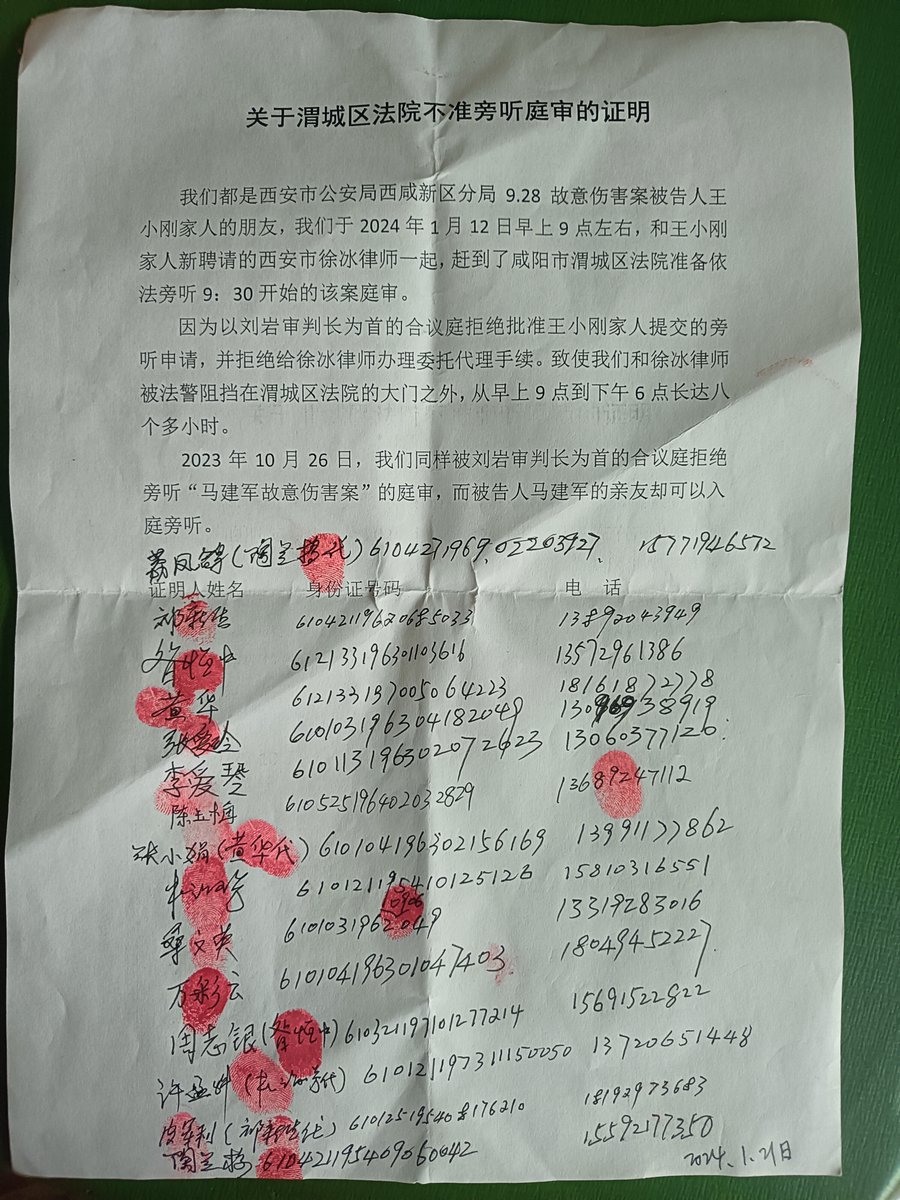 关于渭城区法院不准旁听庭审的证明
我们都是西安市公安局西咸新区分局 9.28 故意伤害案被告人王
小刚家人的朋友，我们于 2024 年 1 月 12 日早上 9 点左右，和王小刚
家人新聘请的西安市徐冰律师一起，赶到了咸阳市渭城区法院准备依
法旁听 9：30 开始的该案庭审。
因为以刘岩审判长为首的合议庭拒绝批准王小刚家人提交的旁
听申请，并拒绝给徐冰律师办理委托代理手续。致使我们和徐冰律师
被法警阻挡在渭城区法院的大门之外，从早上 9 点到下午 6 点长达八
个多小时。
2023 年 10 月 26 日，我们同样被刘岩审判长为首的合议庭拒绝
旁听“马建军故意伤害案”的庭审，而被告人马建军的亲友却可以入
庭旁听。
15771946572
证明人姓名 身份证号码 电 话
13892043949
612133196301103616 13572961386
黄华 612133197005064223 18161872778
610103196304182049
李爱琴 610113196302072623 13060377120
陈玉梅 610525196402032829 13689247112
张小娟（黄华代）610104196302156169 13991177862
610121195410125126 15810316551
13319283016
万彩云 610104196301047403 18049452227
周志银 610321197101277214 15691522822
610121197311150050 13720651448
610125195408176210 18192973683
610421195409060042 15592177350
2024.1.21日